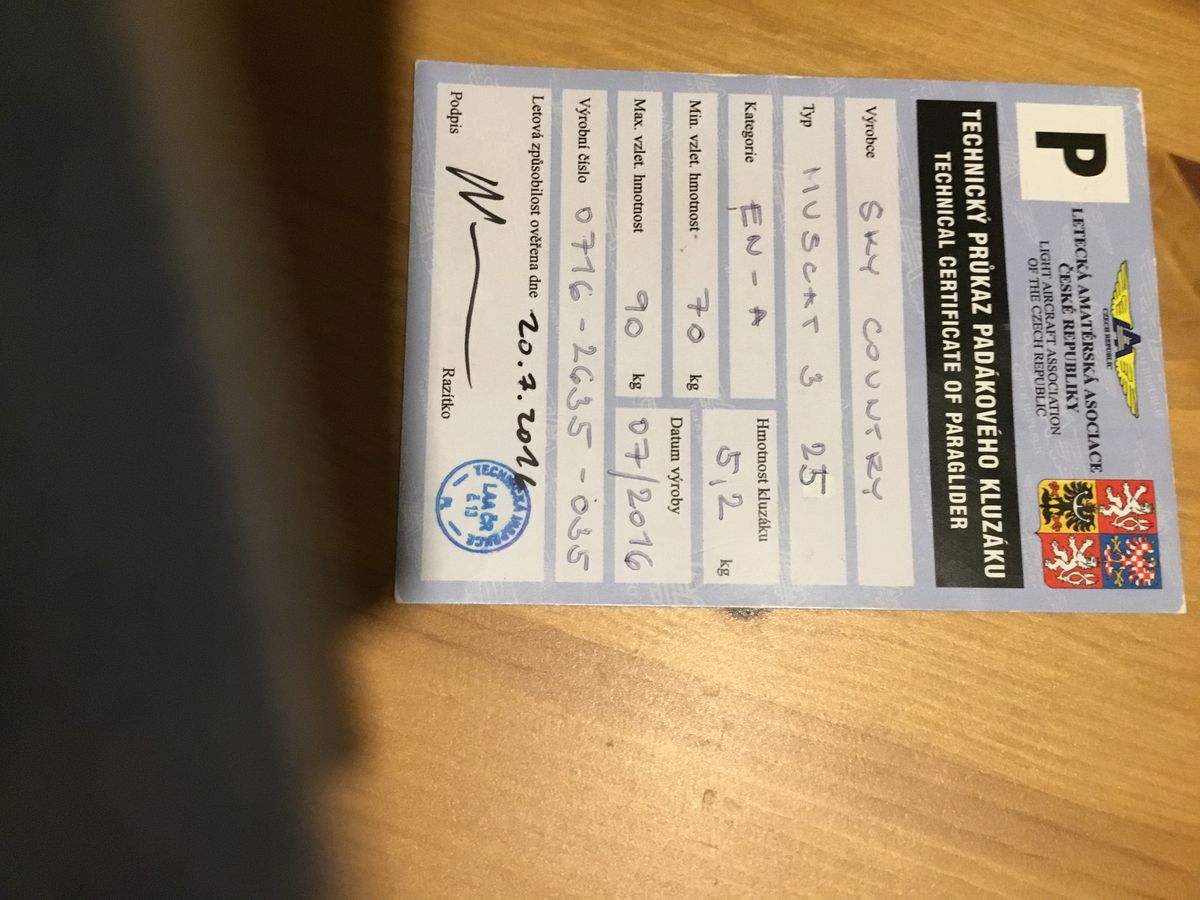 P
LAA
CZECH REPUBLIC
LETECKÁ AMATÉRSKÁ ASOCIACE
ČESKÉ REPUBLIKY
LIGHT AIRCRAFT ASSOCIATION
OF THE CZECH REPUBLIC
TECHNICKÝ PRŮKAZ PADÁKOVÉHO KLUZÁKU
TECHNICAL CERTIFICATE OF PARAGLIDER
Výrobce SKY COUNTRY
Typ MUSCAT 3 25
Kategorie EN - A
Hmotnost kluzáku 5,2 kg
Min. vzlet. hmotnost 70 kg
Max. vzlet. hmotnost 90 kg
Datum výroby 07/2016
Výrobní číslo 0716 - 2635 - 035
Letová způsobilost ověřena dne 20.7.2016
Podpis
Razítko
TECHNICKÁ INSPEKCE
LAA ČR